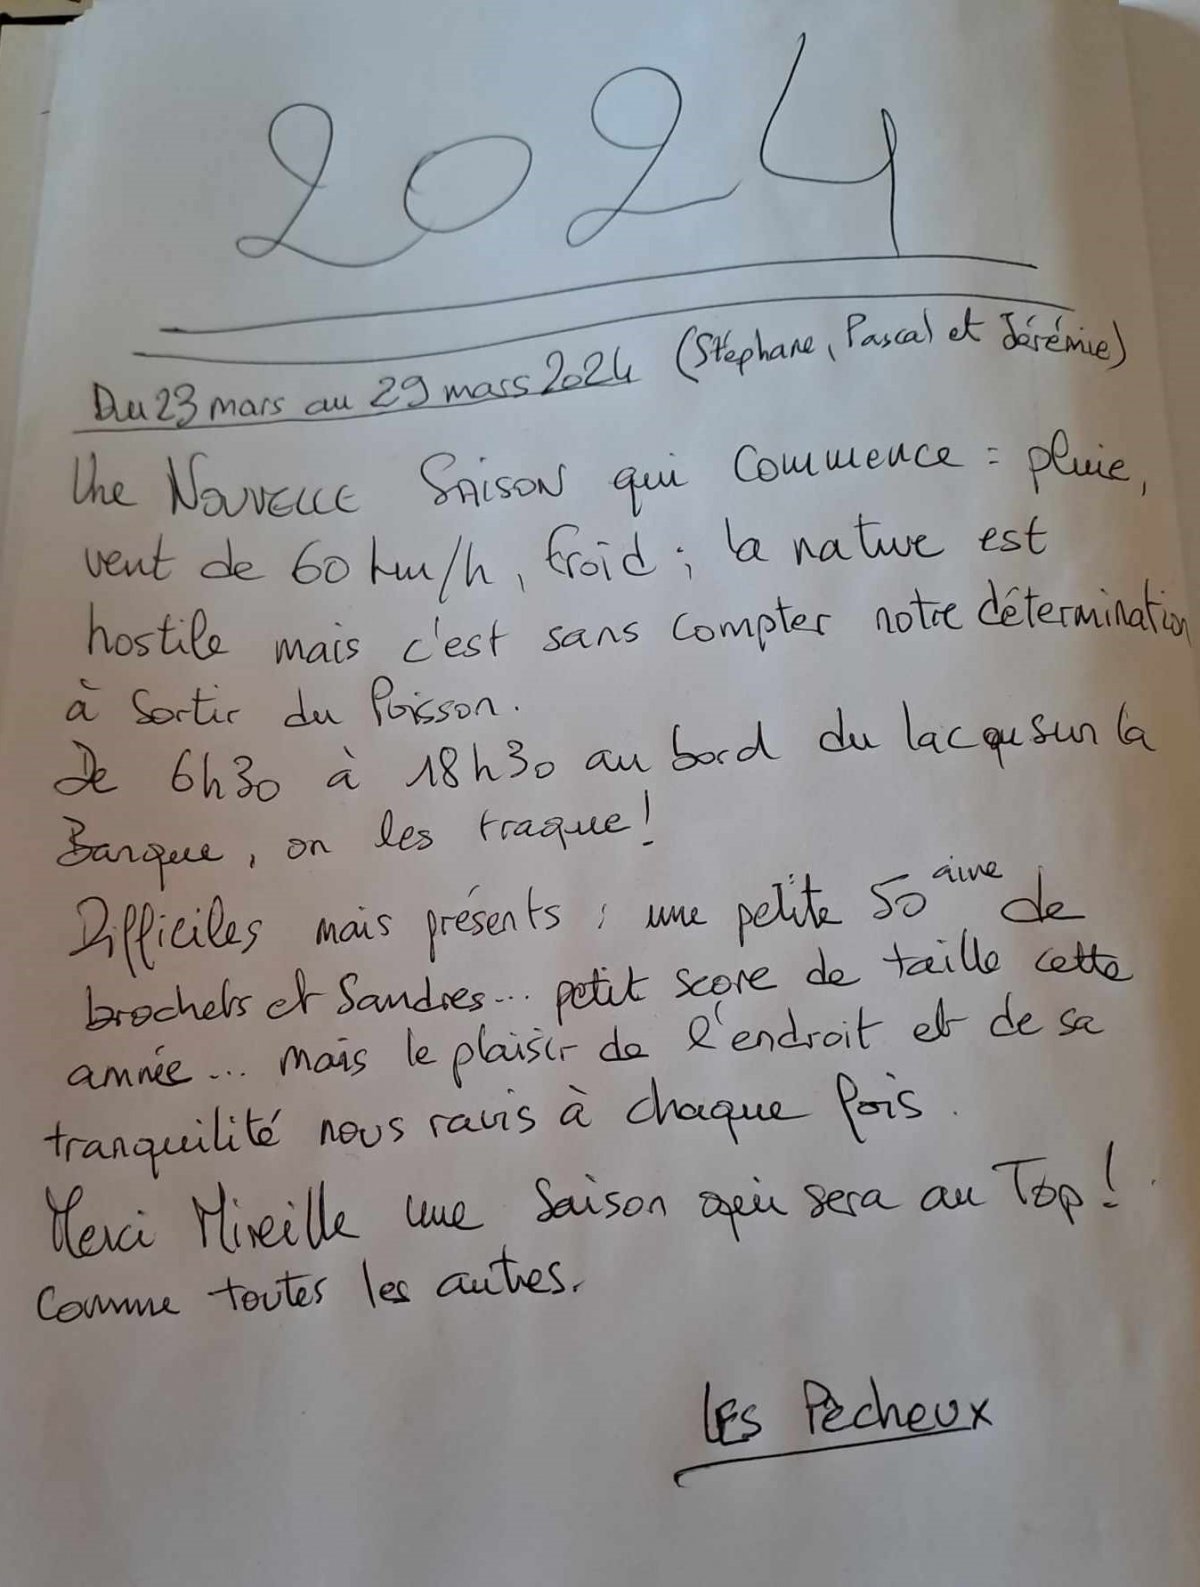 2024
Du 23 mars au 29 mars 2024 (Stéphane, Pascal et Jérémie)
Une NOUVELLE SAISON qui commence : pluie,
vent de 60 km/h, froid ; la nature est
hostile mais c'est sans compter notre détermination
à sortir du Poisson.
De 6h30 à 18h30 au bord du lac ou sur la
Barque, on les traque !
Difficiles mais présents ; une petite 50aine de
brochets et Sandres... petit score de taille cette
année... mais le plaisir de l'endroit et de sa
tranquilité nous ravis à chaque fois.
Merci Mireille une Saison qui sera au Top !
Comme toutes les autres.
LES Pècheux